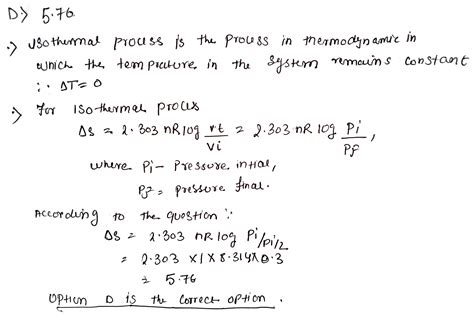 D:) 5.76
:) Isothermal process is the process in thermodynamic in
which the temprature in the system remains constant
∴ ΔT = 0
:) For Isothermal process
ΔS = 2.303 nR log vt/vi = 2.303 nR log Pi/Pf,
where Pi – Pressure intial,
Pf = pressure final.
According to the question :
ΔS = 2.303 nR log Pi/Pi/2
= 2.303 × 1 × 8.314 × 0.3
= 5.76
Option D is the correct option.